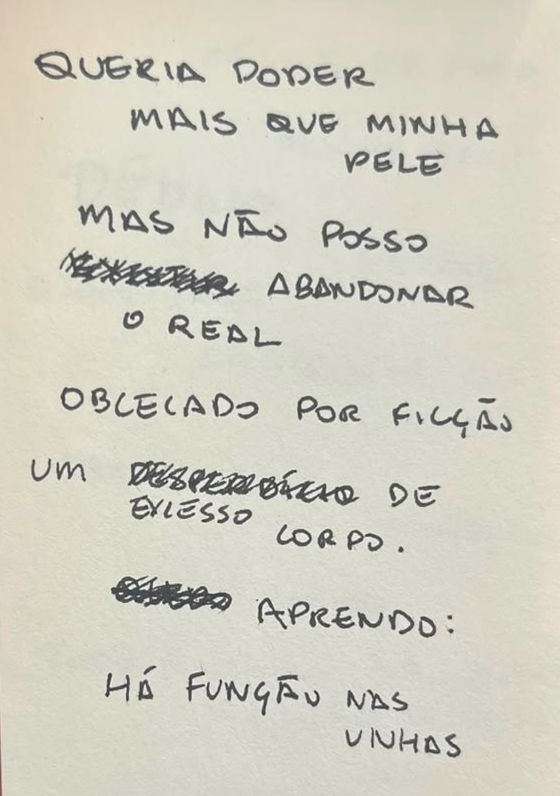 QUERIA PODER
MAIS QUE MINHA
PELE
MAS NÃO POSSO
ABANDONAR
O REAL
OBCECADO POR FICÇÃO
UM DESPERDÍCIO DE
EXCESSO
CORPO.
APRENDO:
HÁ FUNÇÃO NAS
UNHAS